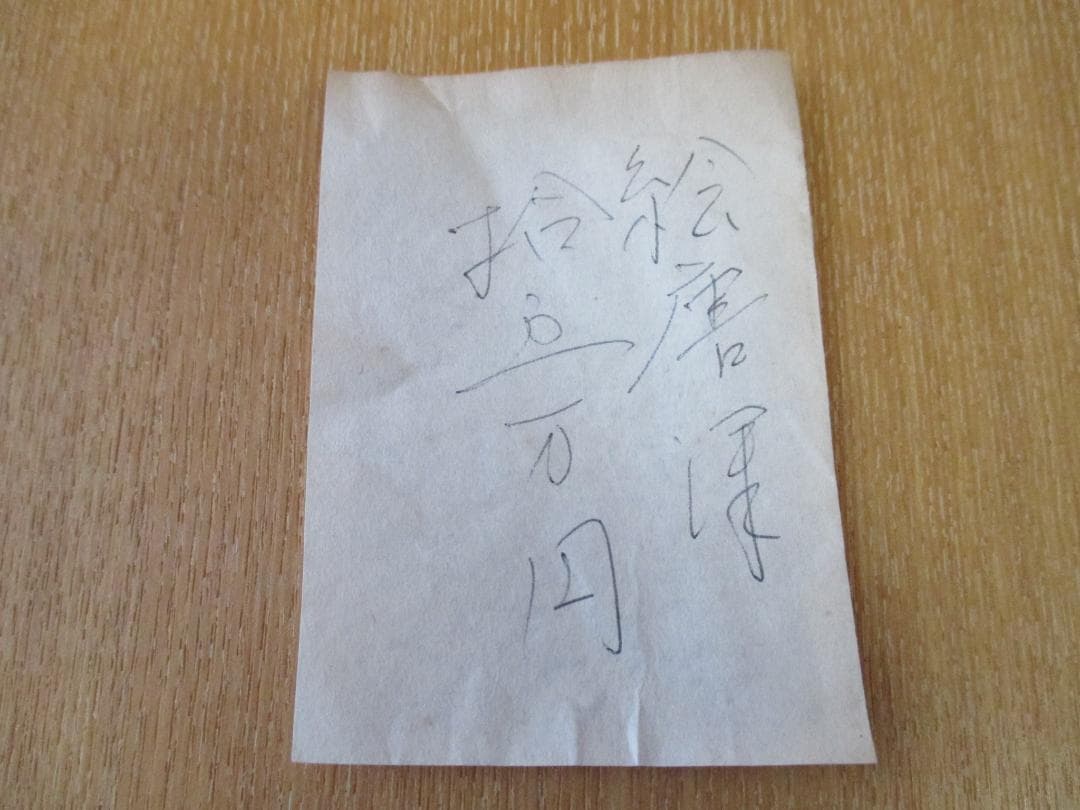 絵唐津
拾五万円